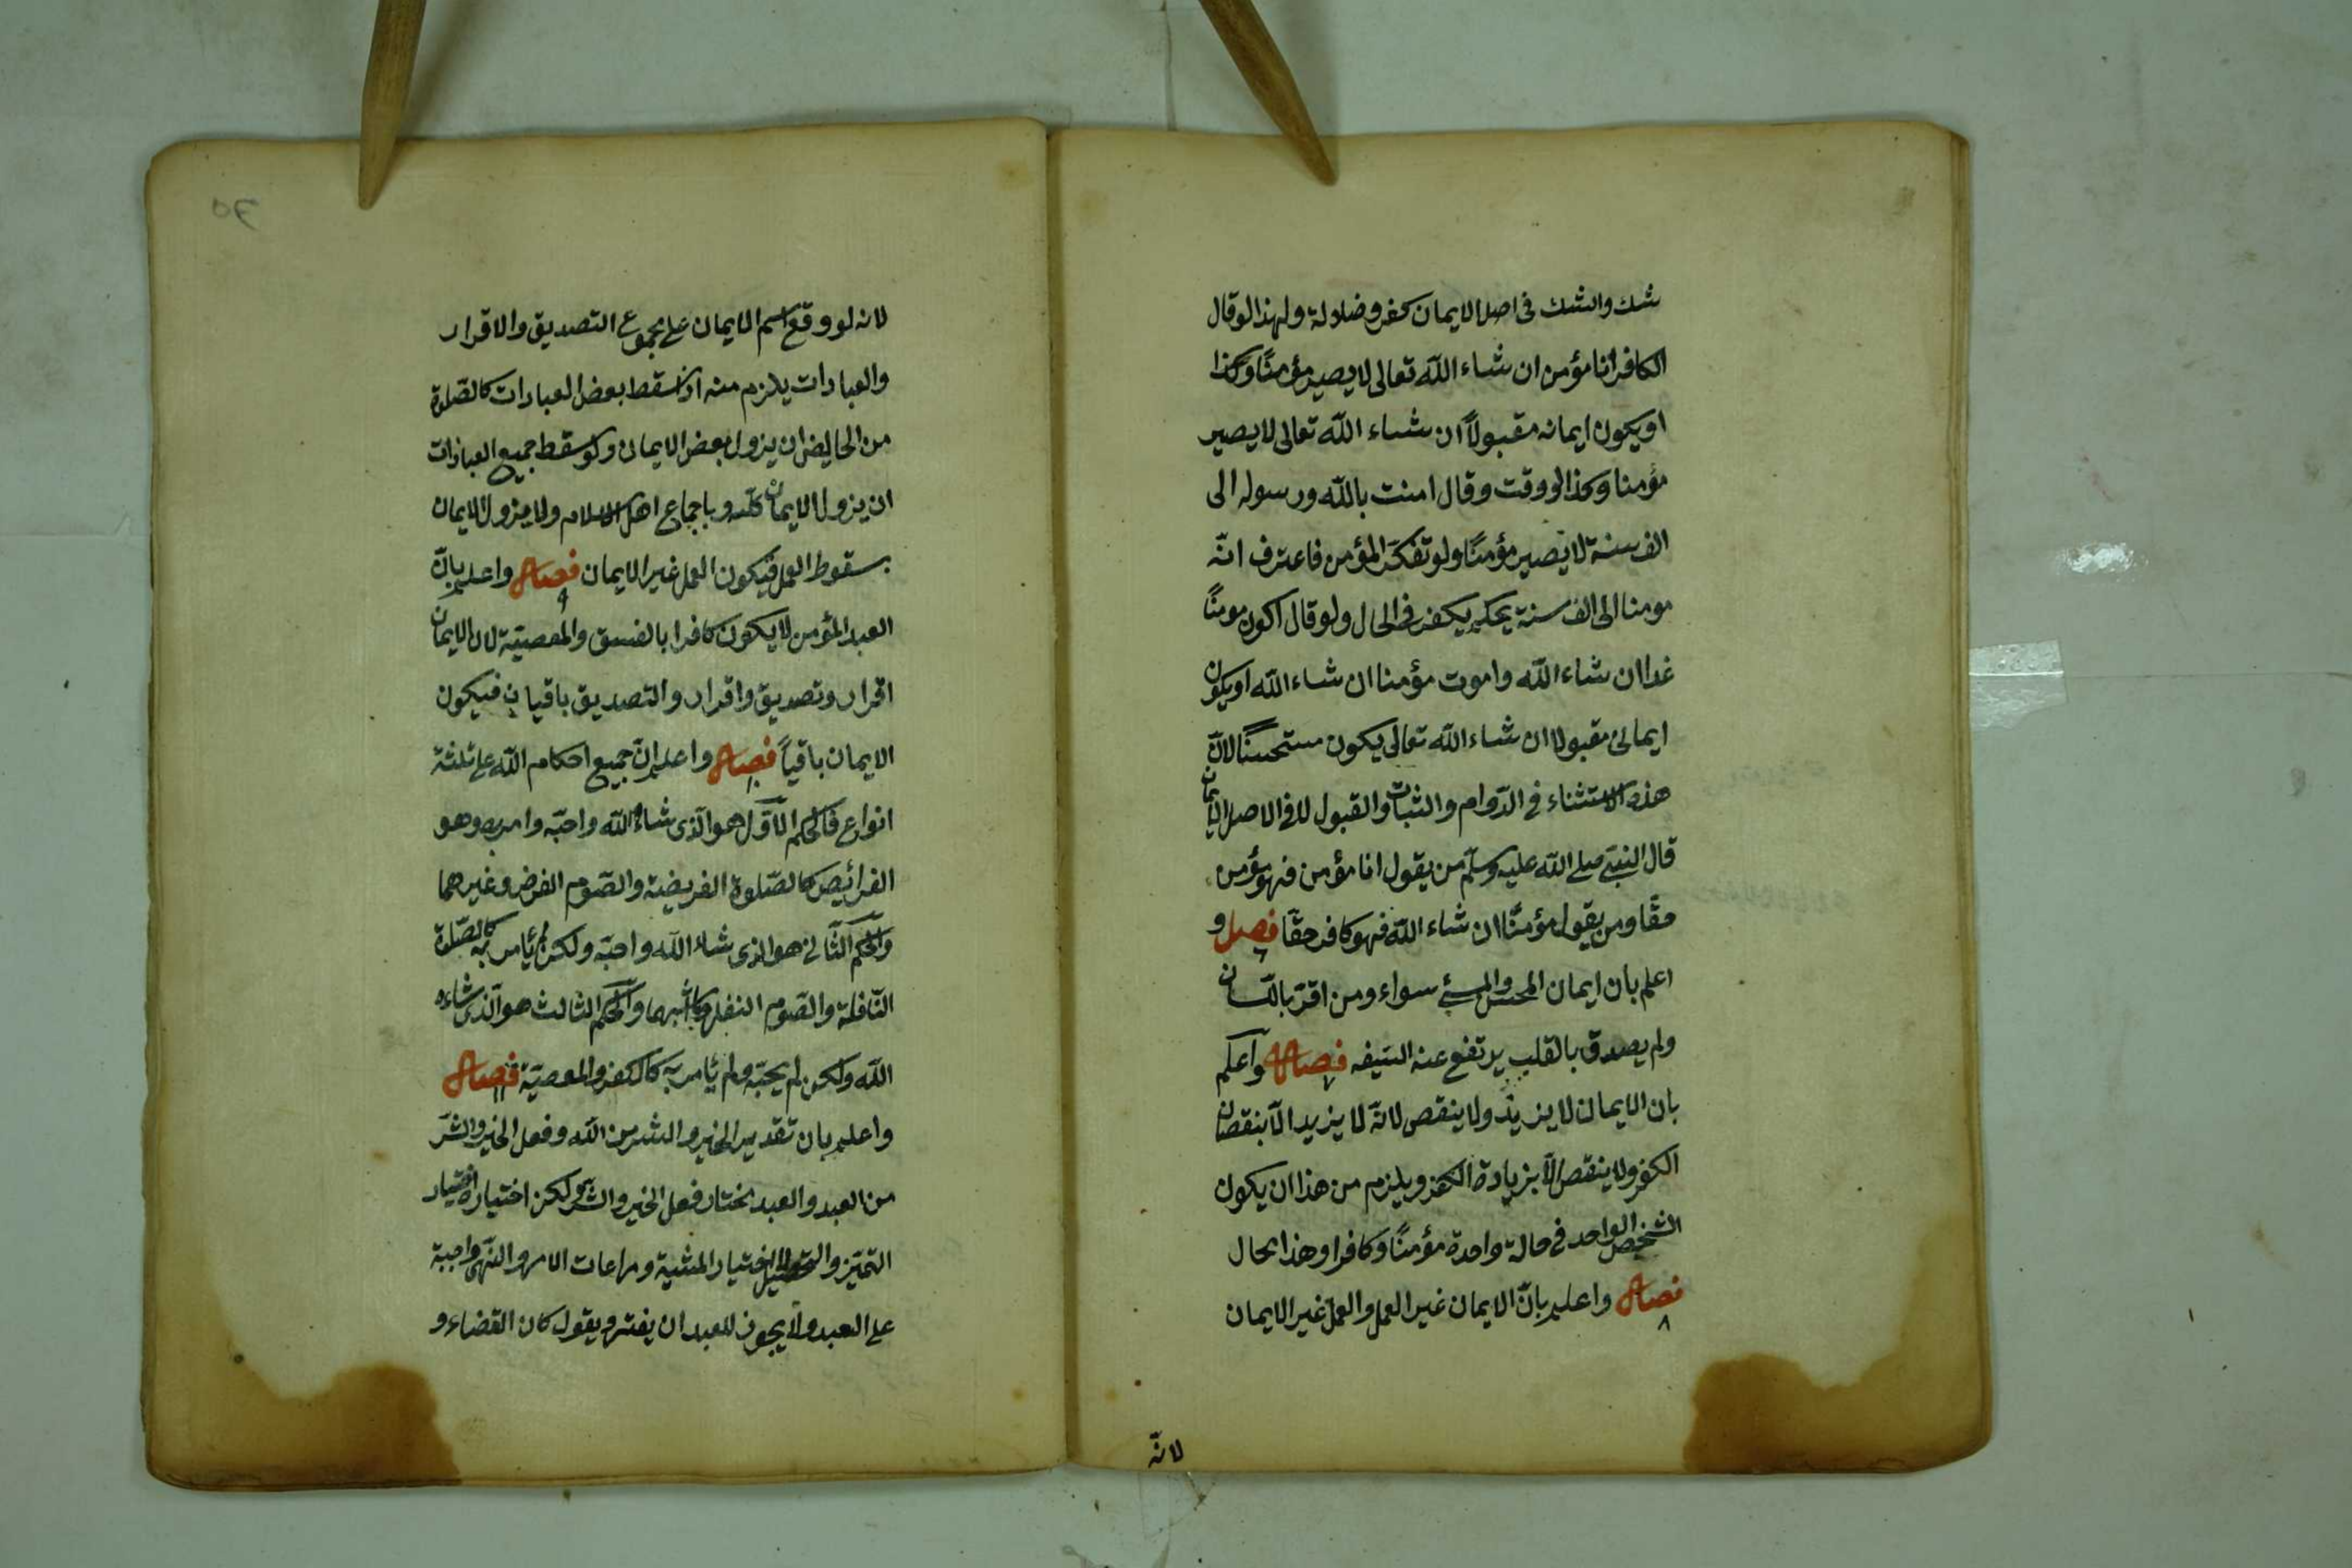 شك والشك فى اصل الايمان كفر وضلالة ولهذا لو قال
الكافر انا مؤمن ان شاء الله تعالى لا يصير مؤمنًا وكذا
او يكون ايمانه مقبولاً ان شاء الله تعالى لا يصير
مؤمنا وكذا لو وقت وقال امنت بالله ورسوله الى
الف سنة لا يصير مؤمنًا ولو تفكر المؤمن فاعترف انّه
مومنا الى الف سنة يحكم يكفر فى الحال ولو قال اكون مومنًا
غدا ان شاء الله واموت مؤمنا ان شاء الله او يكون
ايمانى مقبولا ان شاء الله تعالى يكون مستحسنًا لانّ
هذه الاستثناء فى الدّوام والثبات والقبول لا فى الاصل الايمان
قال النبيّ صلى الله عليه وسلّم من يقول انا مؤمن فهو مؤمن
حقًا ومن يقول مؤمنًا ان شاء الله فهو كافر حقًا فصل و
٦
اعلم بان ايمان المحسن والمسئ سواء ومن اقرّ باللّسان
ولم يصدق بالقلب يرتفع عنه السّيف فصل واعلم
٧
بان الايمان لا يزيد ولا ينقص لانّه لا يزيد الّا بنقصان
الكفر ولا ينقص الّا بزيادة الكفر ويلزم من هذا ان يكون
الشخص الواحد فى حالة واحدة مؤمنًا وكافرا وهذا محال
فصل واعلم بانّ الايمان غير العمل والعمل غير الايمان
٨
لانّه
لانه لو وقع اسم الايمان على مجموع التصديق والاقرار
والعبادات يلزم منه اذا سقط بعض العبادات كالصّلوة
من الحايض ان يزول بعض الايمان ولو سقط جميع العبادات
ان يزول الايمان كلّه وباجماع اهل الاسلام ولا يزول الايمان
بسقوط العمل فيكون العمل غير الايمان فصل واعلم بانّ
٩
العبد المؤمن لا يكون كافرا بالفسق والمعصيّة لان الايمان
اقرار وتصديق واقرار والتصديق باقيان فيكون
الايمان باقياً فصل واعلم انّ جميع احكام الله على ثلثة
١٠
انواع فالحكم الاوّل هو الّذى شاء الله واحبّه وامر به وهو
الفرائيض كالصّلوة الفريضة والصّوم الفرض وغيرهما
والحكم الثّانى هو الذى شاء الله واحبّه ولكن لم يأمر به كالصّلوة
النّافلة والصّوم النفل وما اشبهما والحكم الثالث هو الّذى شاءه
الله ولكن لم يحبّه ولم يأمر به كالكفر والمعصيّة فصل
١١
واعلم بان تقدير الخير والشر من الله وفعل الخير والشرّ
من العبد والعبد مختار فعل الخير والشر ولكن اختياره اختيار
التميّز والتحصيل لا اختيار المشية ومراعات الامر والنّهى واجبة
على العبد ولا يجوز للعبد ان يفتر ويقول كان القضاء و